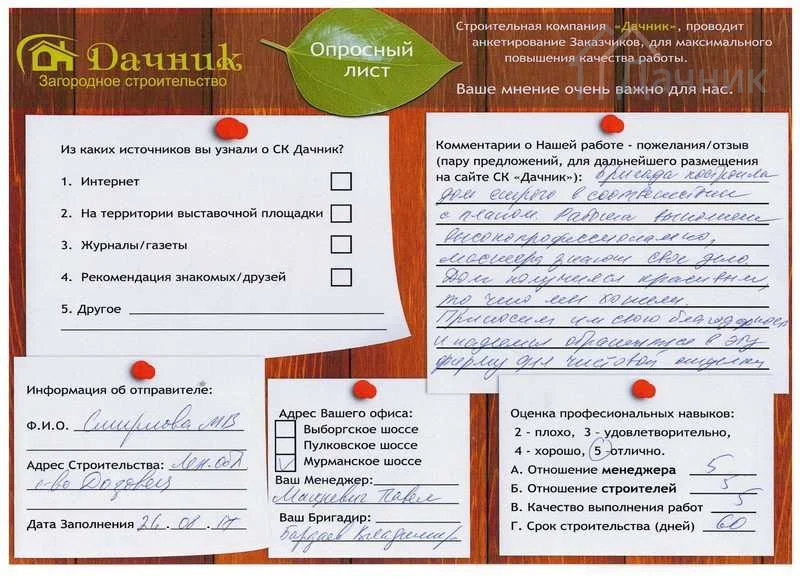 Дачник
Загородное строительство
Опросный
лист
Строительная компания «Дачник», проводит
анкетирование Заказчиков, для максимального
повышения качества работы.
Ваше мнение очень важно для нас.
Дачник
Из каких источников вы узнали о СК Дачник?
1. Интернет
2. На территории выставочной площадки
3. Журналы/газеты
4. Рекомендация знакомых/друзей
5. Другое
Комментарии о Нашей работе - пожелания/отзыв
(пару предложений, для дальнейшего размещения
на сайте СК «Дачник»): Бригада построила
дом строго в соответствии
с планом. Работа выполнена
высокопрофессионально,
мастера знают свое дело.
Дом получился красивым,
то что мы хотели.
Приносим им свою благодарность
и надеемся обратиться в эту
фирму для чистовой отделки
Информация об отправителе:
Ф.И.О. Смирнова МВ
Адрес Строительства: Лен.обл
Дата Заполнения 26.08.
Адрес Вашего офиса:
Выборгское шоссе
Пулковское шоссе
Мурманское шоссе
Ваш Менеджер:
Павел
Ваш Бригадир:
Владимир
Оценка професиональных навыков:
2 - плохо, 3 - удовлетворительно,
4 - хорошо, 5 -отлично.
А. Отношение менеджера 5
Б. Отношение строителей 5
В. Качество выполнения работ 5
Г. Срок строительства (дней) 60